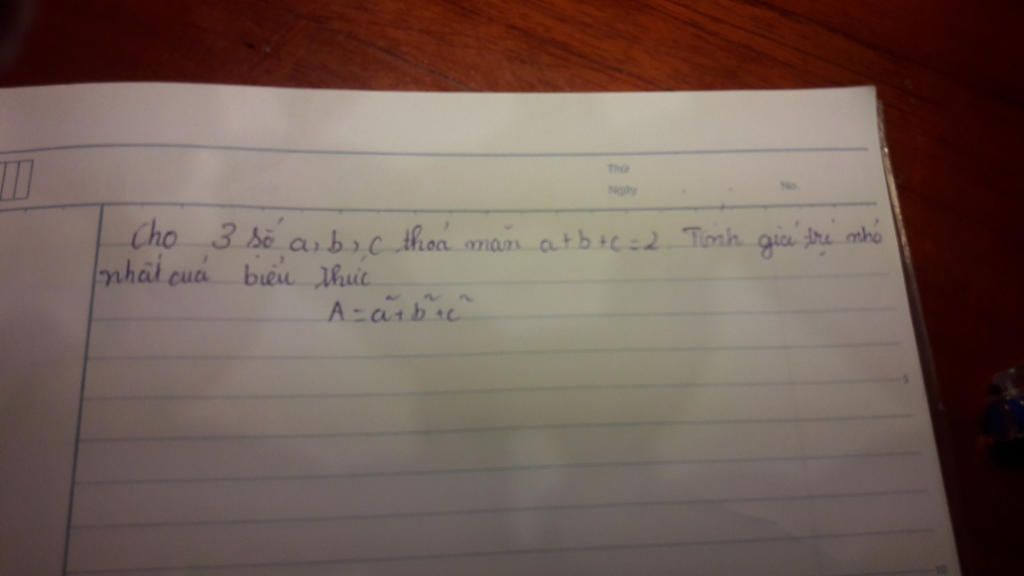 Thứ
Ngày . . No.
Cho 3 số a, b, c thoả mãn a+b+c=2 Tính giá trị nhỏ
nhất của biểu thức
A = a²+b²+c²
5
10